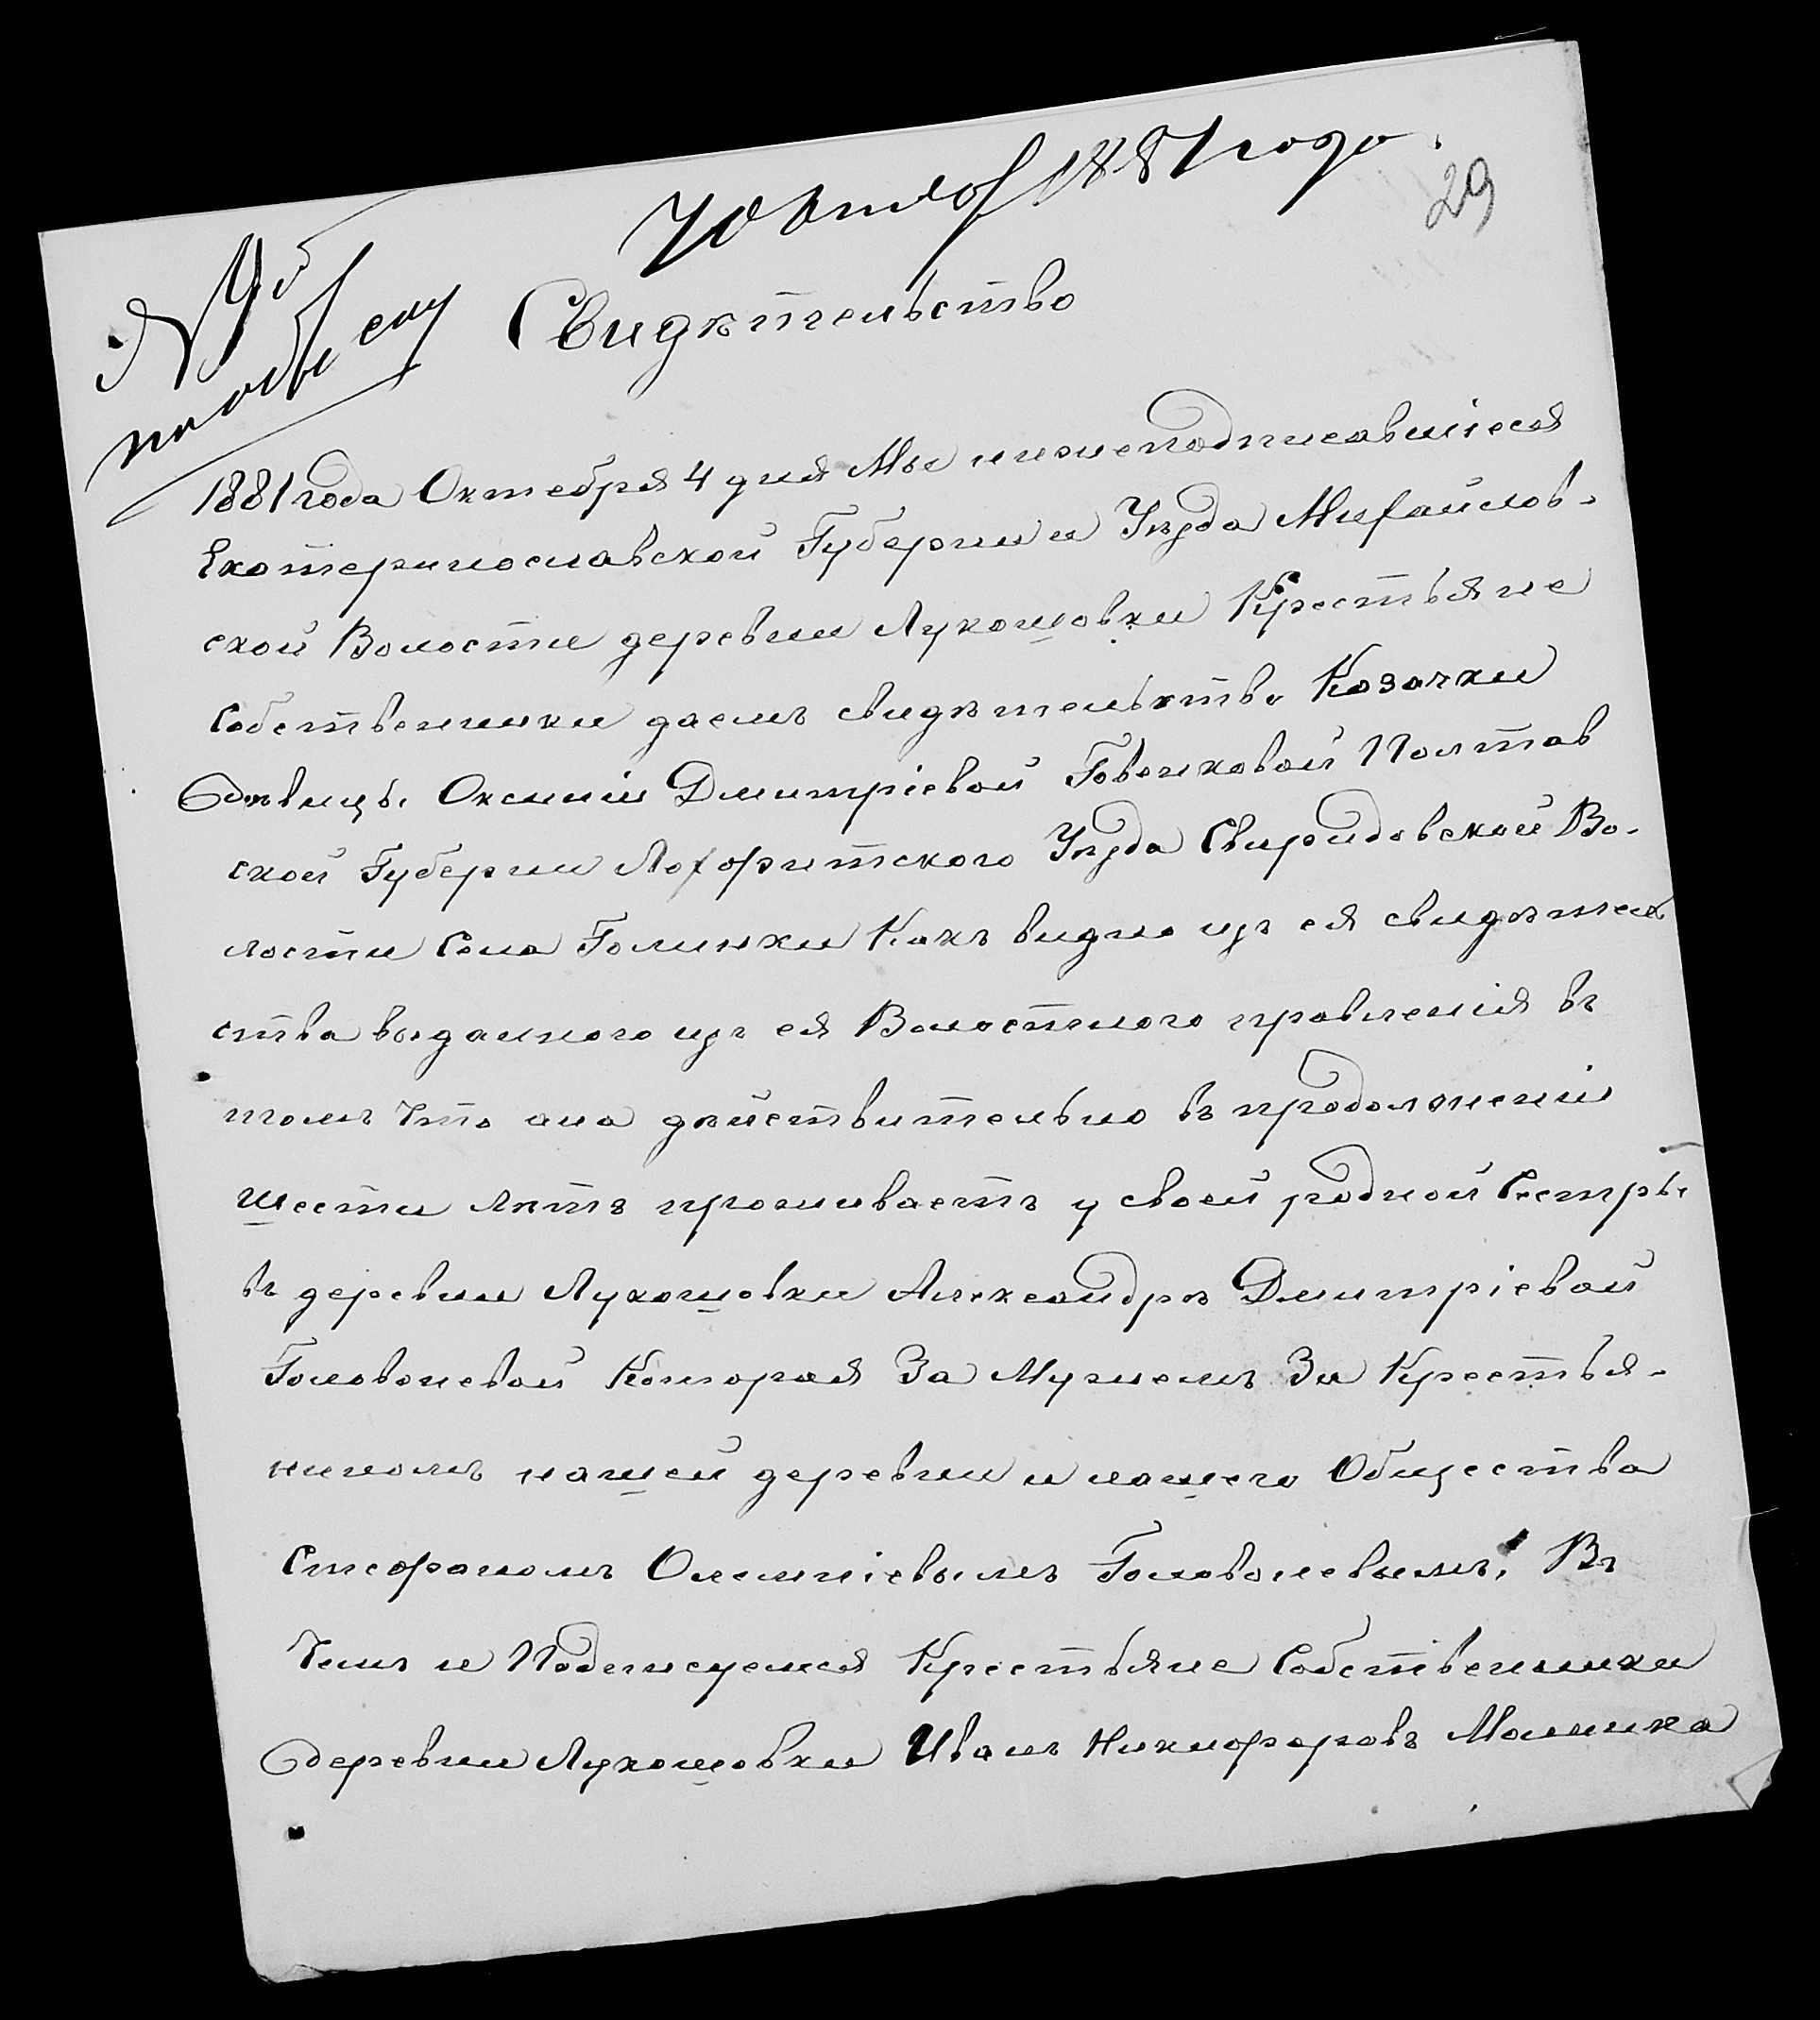 7 Октяб 1881 года.
29
№
Свидѣтельство
1881 года Октебря 4 дня Мы нижеподписавшіеся
Екатеринославской Губернии и Уѣзда Михайлов-
ской Волости деревни Лукашовки Крестьяне
Собственники даемъ свидѣтельство Козачки
Дѣвицы Оксиніи Дмитріевой Говенковой Полтав
ской Губернии Лохвитского Уѣзда Свиридовской Во-
лости Села Голинки Какъ видно изъ ея свидѣтель
ства выданного изъ ея Волостного правленія въ
томъ Что она дѣйствительно въ продолжении
шести лѣтъ проживаетъ у своей родной Сестры
въ деревни Лукашовки Александрѣ Дмитріевой
Головоневой Которая За Мужемъ За Крестья-
ниномъ нашей деревни и нашего Общества
Стефаномъ Олемпіевымъ Головоневымъ, Въ
Чемъ и Подписуемся Крестьяне Собственники
деревни Лукашовки Иванъ Никифоровъ Малинка